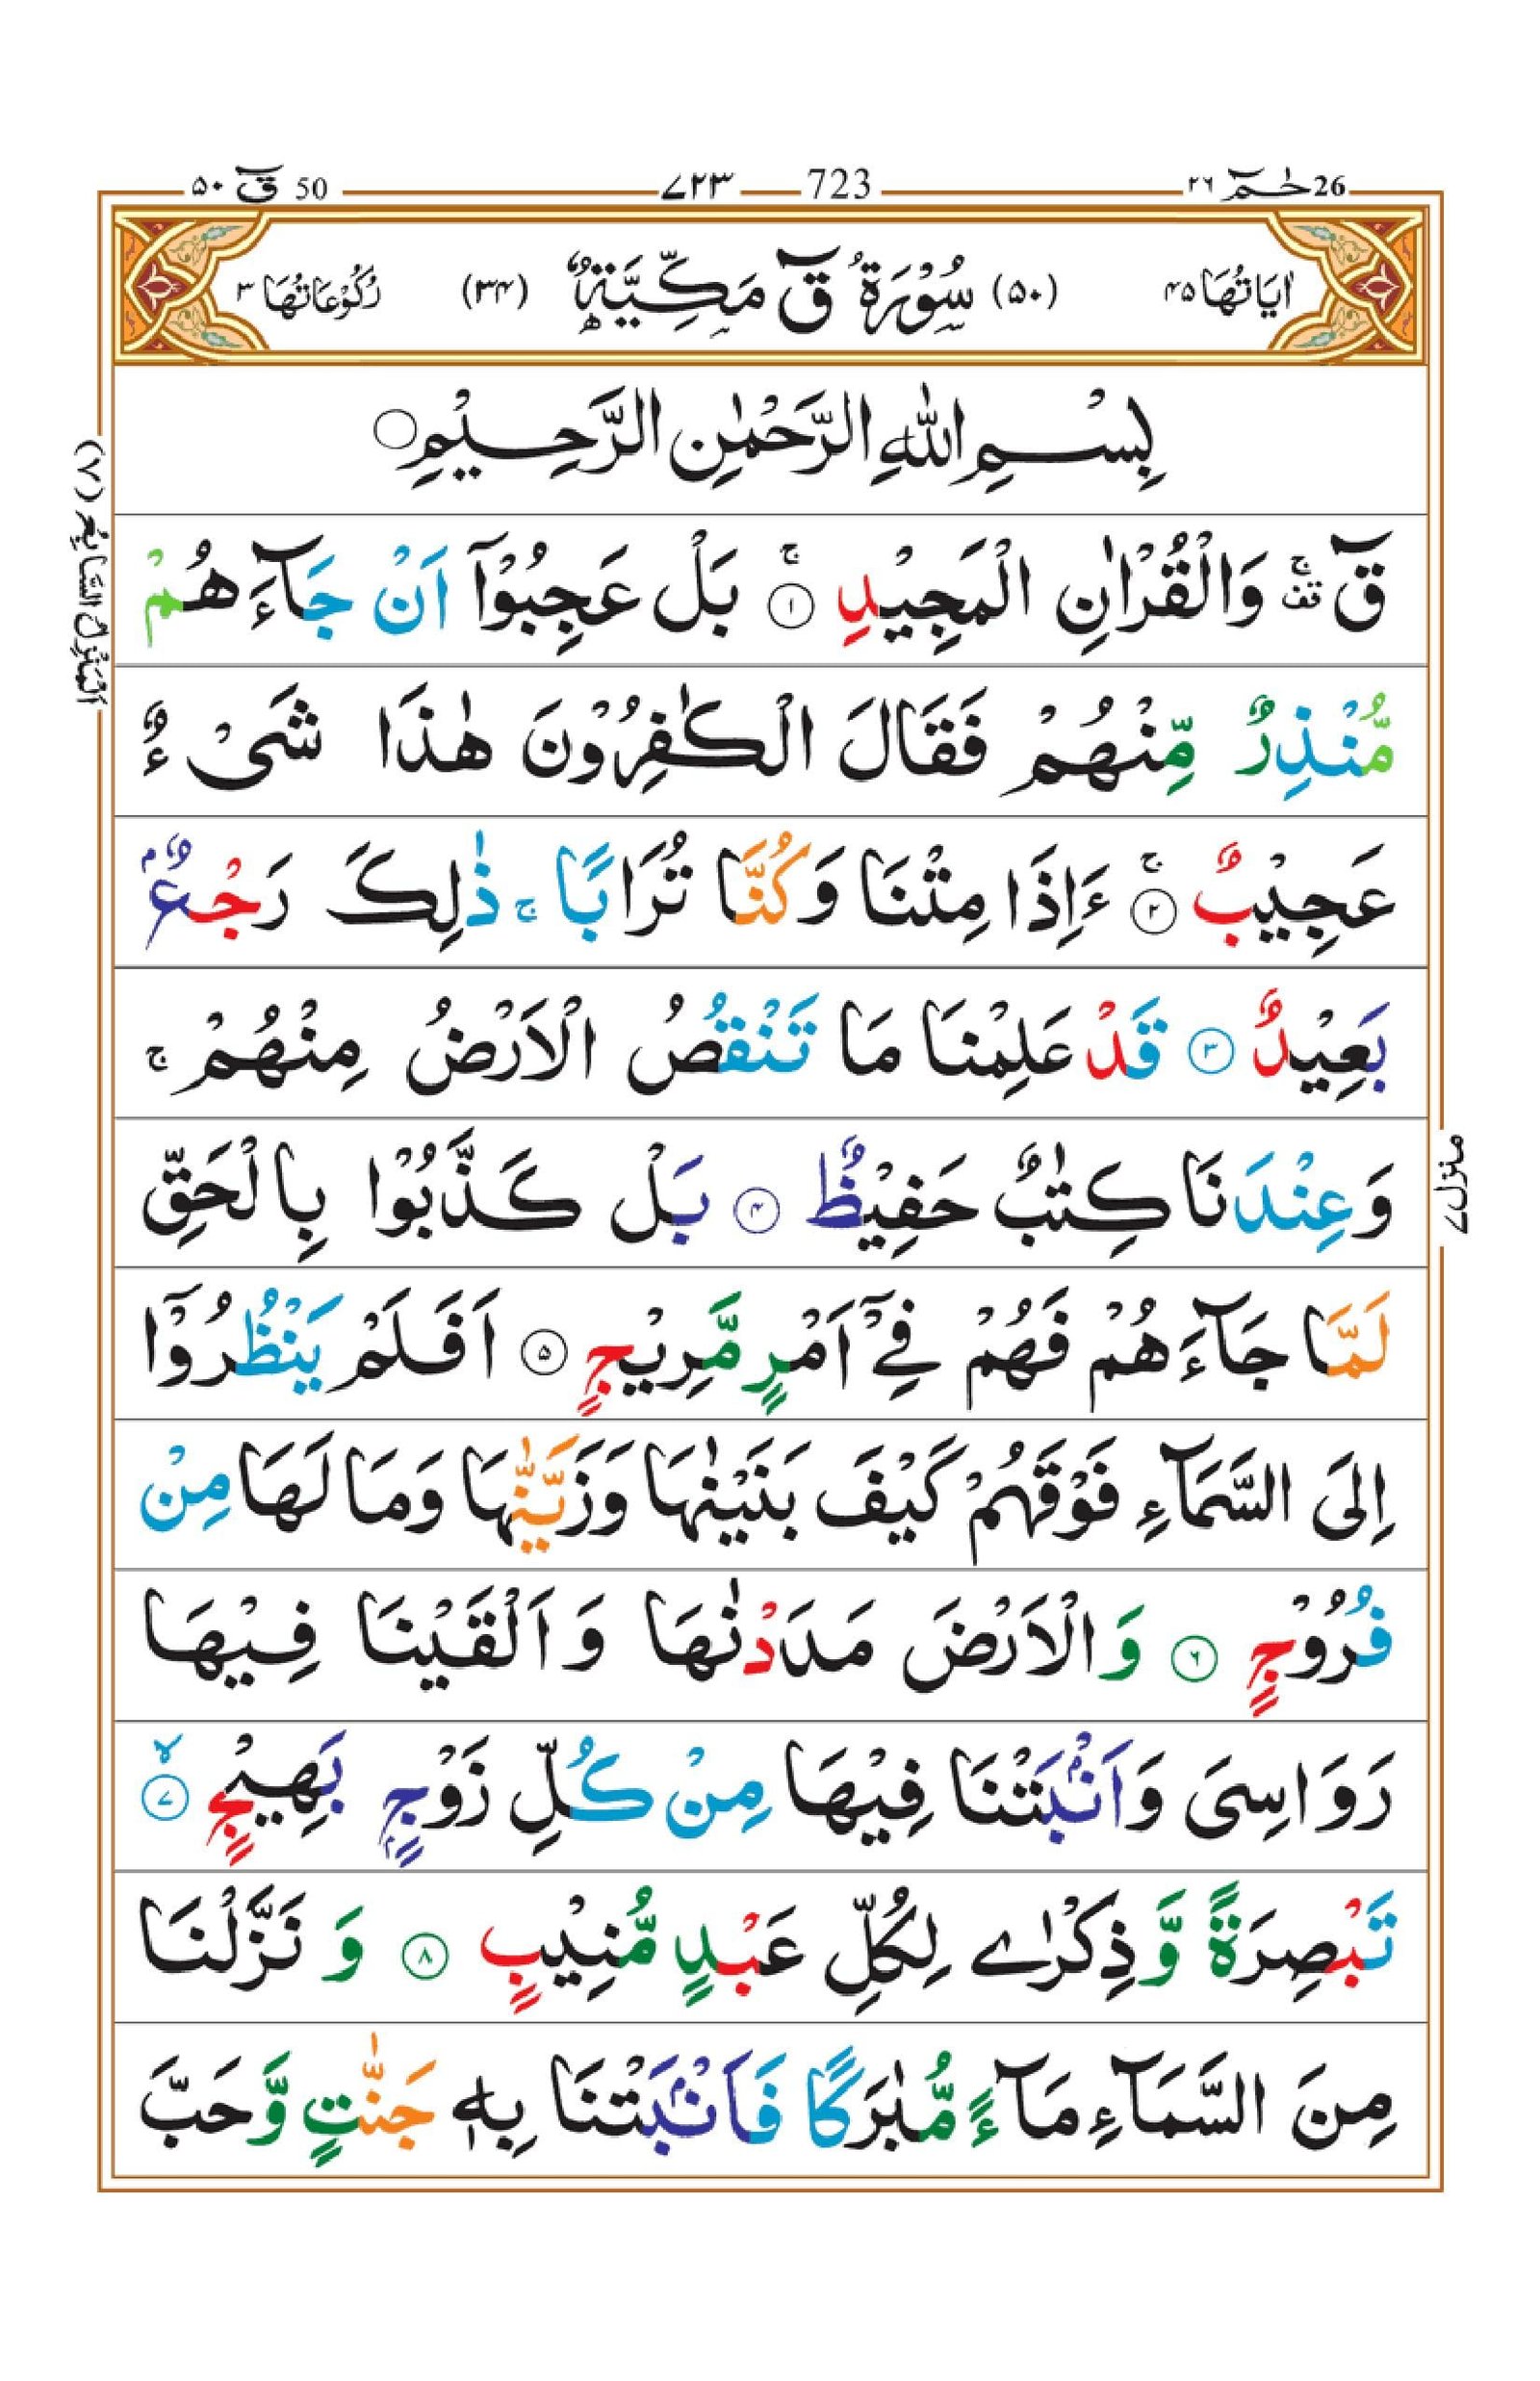 26 حٰمٓ ٢٦ 723 ٧٢٣ 50 قٓ ٥٠
اٰيَاتُهَا ٤٥ (٥٠) سُوْرَةُ قٓ مَكِّيَّةٌ (٣٤) رُكُوْعَاتُهَا ٣
بِسْمِ اللّٰهِ الرَّحْمٰنِ الرَّحِيْمِ ○
قٓ ۚ قف وَالْقُرْاٰنِ الْمَجِيْدِ ۚ ﴿١﴾ بَلْ عَجِبُوْۤا اَنْ جَآءَهُمْ
مُّنْذِرٌ مِّنْهُمْ فَقَالَ الْكٰفِرُوْنَ هٰذَا شَیْءٌ
عَجِيْبٌ ۚ ﴿٢﴾ ءَاِذَا مِتْنَا وَكُنَّا تُرَابًا ۚ ذٰلِكَ رَجْعٌۢ
بَعِيْدٌ ﴿٣﴾ قَدْ عَلِمْنَا مَا تَنْقُصُ الْاَرْضُ مِنْهُمْ ۚ
وَعِنْدَنَا كِتٰبٌ حَفِيْظٌ ﴿٤﴾ بَلْ كَذَّبُوْا بِالْحَقِّ
لَمَّا جَآءَهُمْ فَهُمْ فِیْۤ اَمْرٍ مَّرِيْجٍ ﴿٥﴾ اَفَلَمْ يَنْظُرُوْۤا
اِلَى السَّمَآءِ فَوْقَهُمْ كَيْفَ بَنَيْنٰهَا وَزَيَّنّٰهَا وَمَا لَهَا مِنْ
فُرُوْجٍ ﴿٦﴾ وَالْاَرْضَ مَدَدْنٰهَا وَاَلْقَيْنَا فِيْهَا
رَوَاسِیَ وَاَنْۢبَتْنَا فِيْهَا مِنْ كُلِّ زَوْجٍۭ بَهِيْجٍ ۙ ﴿٧﴾
تَبْصِرَةً وَّذِكْرٰى لِكُلِّ عَبْدٍ مُّنِيْبٍ ﴿٨﴾ وَنَزَّلْنَا
مِنَ السَّمَآءِ مَآءً مُّبٰرَكًا فَاَنْۢبَتْنَا بِهٖ جَنّٰتٍ وَّحَبَّ
اَلْمَنْزِلُ السَّابِعُ (٧)
منزل ٧